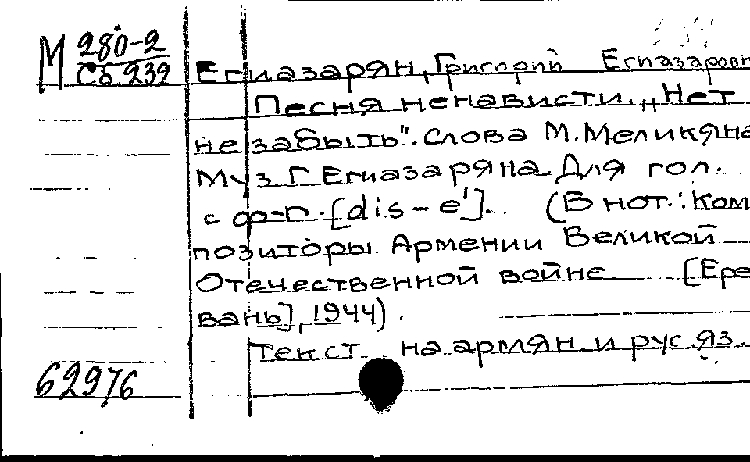 М 280-2
Сб 239
Егиазарян, Григорий Егиазаров
Песня ненависти. „Нет
не забыть". Слова М. Меликяна
Муз. Г. Егиазаряна. Для гол.
с ф-п. [dis - e']. (В нот.: Ком
позиторы Армении Великой
Отечественной войне [Ере
вань], 1944).
Текст на армян. и рус. яз.
62976